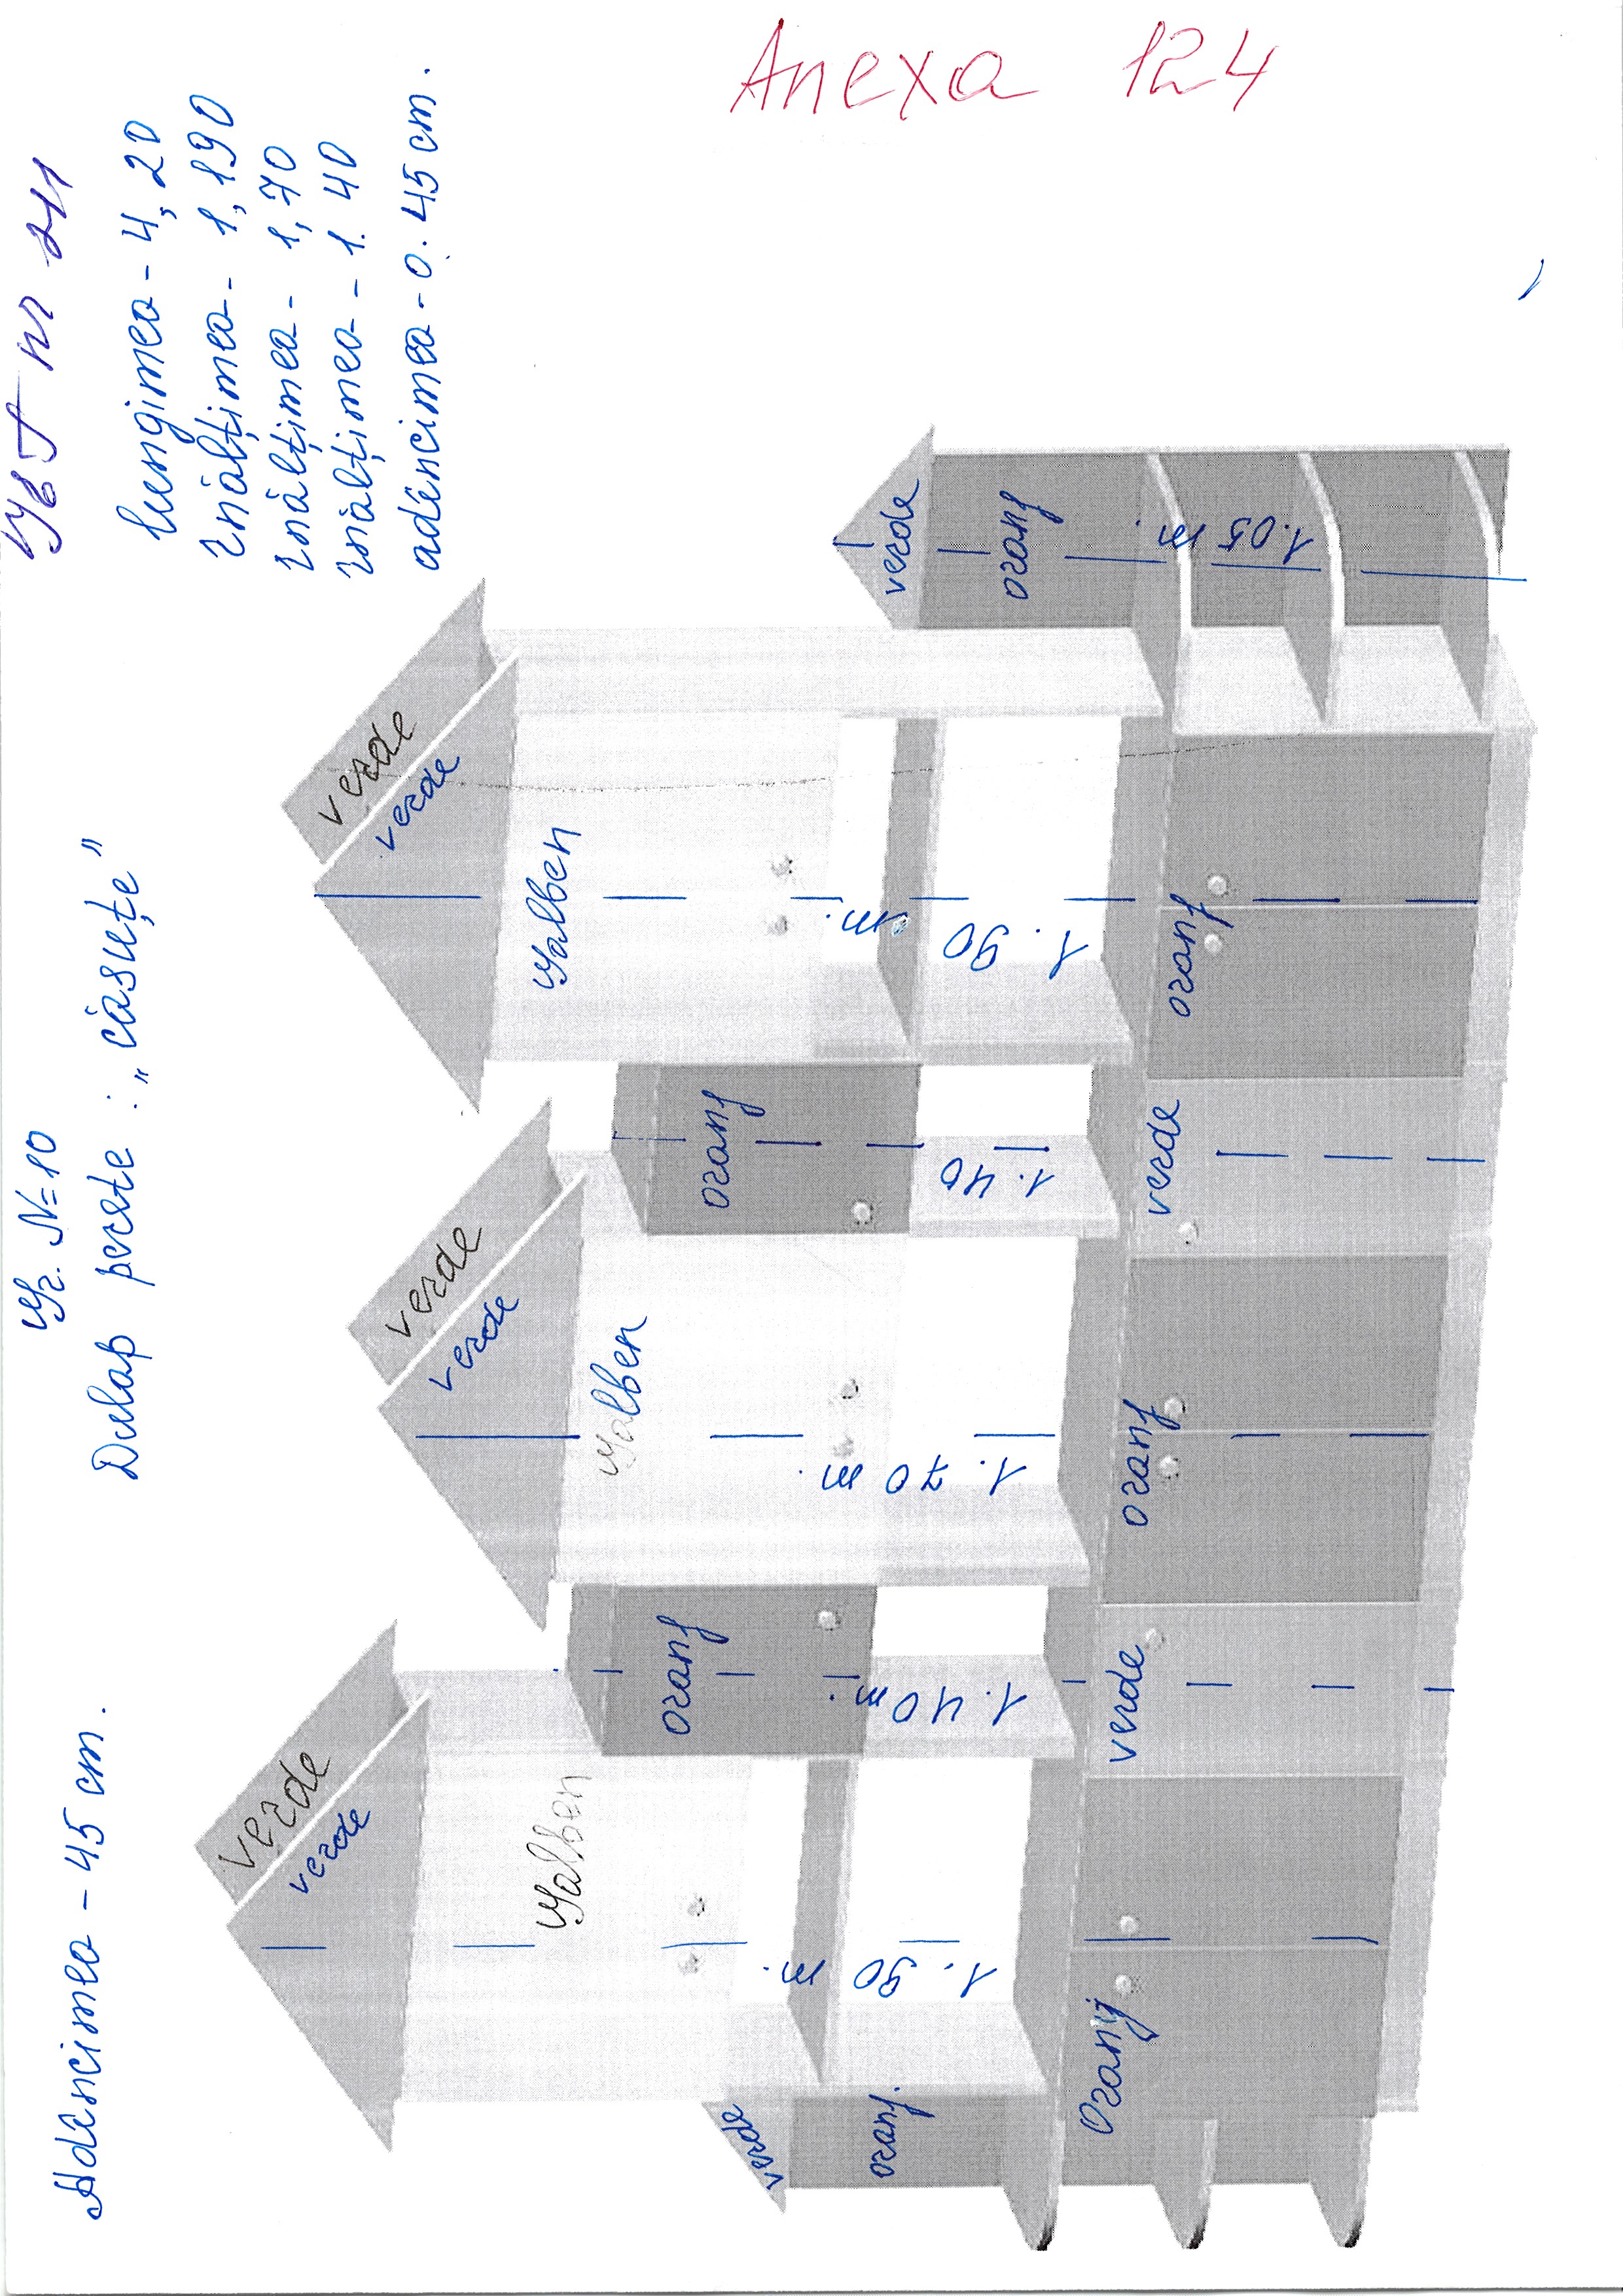 Anexa 124
IJGT nr 211
Gr. N=10
Adâncimea - 45 cm.
Dulap perete : „căsuțe”
Lungimea - 4,20
Înălțimea - 1,190
Înălțimea - 1,70
Înălțimea - 1.40
adâncimea - 0.45 cm.
verde
verde
verde
verde
verde
verde
verde
verde
galben
galben
galben
oranj
oranj
oranj.
oranj
1.90 m.
1.40 m.
1.70 m.
1.40
1.90 m.
1.05 m.
Oranj
verde
oranj
verde
oranj